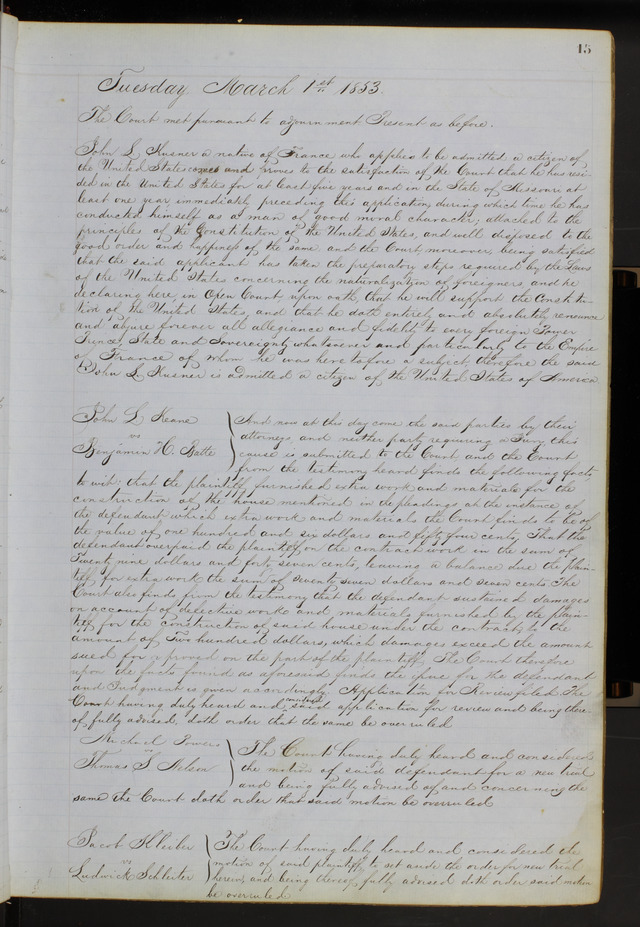 15
Tuesday March 1st 1853.
The Court met pursuant to adjournment Present as before.
John L Kusner a native of France who applies to be admitted a citizen of
the United States comes and proves to the satisfaction of the Court that he has resi-
ded in the United States for at least five years and in the State of Missouri at
least one year, immediately preceding this application, during which time he has
conducted himself as a man of good moral character, attached to the
principles of the Constitution of the United States, and well disposed to the
good order and happiness of the same and the Court, moreover, being satisfied
that the said applicant has taken the preparatory steps required by the Laws
of the United States concerning the naturalization of foreigners, and he
declaring here, in Open Court, upon oath, that he will support the Constitu-
tion of the United States, and that he doth entirely and absolutely renounce
and abjure forever all allegiance and fidelity to every foreign Power
Prince, State and Sovereignty whatsoever and particularly to the Empire
of France of whom he was heretofore a subject, therefore the said
John L Kusner is admitted a citizen of the United States of America
John L Keane
vs
Benjamin H. Batte
And now at this day come the said parties by their
attorneys and neither party requiring a Jury, this
cause is submitted to the Court and the Court
from the testimony heard finds the following facts,
to wit: that the plaintiff furnished extra work and materials for the
construction of the house mentioned in the pleadings at the instance of
the defendant which extra work and materials the Court finds to be of
the value of one hundred and six dollars and fifty four cents, That the
defendant overpaid the plaintiff on the contract work in the sum of
Twenty nine dollars and forty seven cents, leaving a balance due the plain-
tiff for extra work the sum of seventy seven dollars and seven cents. The
Court also finds from the testimony that the defendant sustained damages
on account of defective work and materials furnished by the plain-
tiff for the construction of said house under the contract, to the
amount of Two hundred dollars, which damages exceed the amount
sued for & proved on the part of the plaintiff. The Court therefore
upon the facts found as aforesaid finds the issue for the defendant
and Judgment is given accordingly. Application for Review filed The
Court having duly heard and said application for review and being there
of fully advised, doth order that the same be overruled
Michael Powers
vs
Thomas S Nelson
The Court having duly heard and considered
the motion of said defendant for a new trial
and being fully advised of and concerning the
same the Court doth order that said motion be overruled
Jacob Kleiber
vs
Ludwick Schleiter
The Court having duly heard and considered the
motion of said plaintiff to set aside the order for new trial
herein, and being thereof fully advised doth order said motion
be overruled